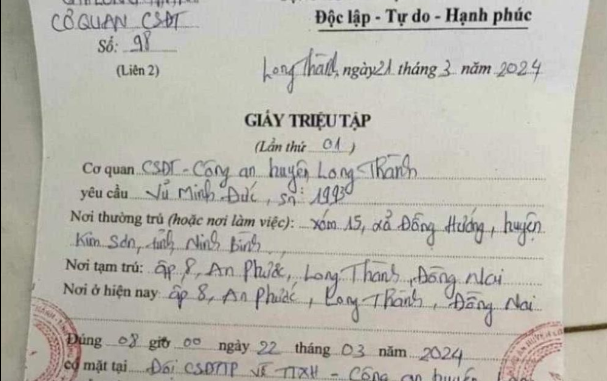 CƠ QUAN CSĐT
Độc lập - Tự do - Hạnh phúc
Số: 98
(Liên 2)
Long Thành, ngày 21 tháng 3 năm 2024
GIẤY TRIỆU TẬP
(Lần thứ 01)
Cơ quan CSĐT - Công an huyện Long Thành
yêu cầu Vũ Minh Đức, sn: 1993
Nơi thường trú (hoặc nơi làm việc): xóm 15, xã Đồng Hướng, huyện
Kim Sơn, tỉnh Ninh Bình
Nơi tạm trú: ấp 8, An Phước, Long Thành, Đồng Nai
Nơi ở hiện nay ấp 8, An Phước, Long Thành, Đồng Nai
Đúng 08 giờ 00 ngày 22 tháng 03 năm 2024
có mặt tại Đội CSĐTTP về TTXH - Công an huyện